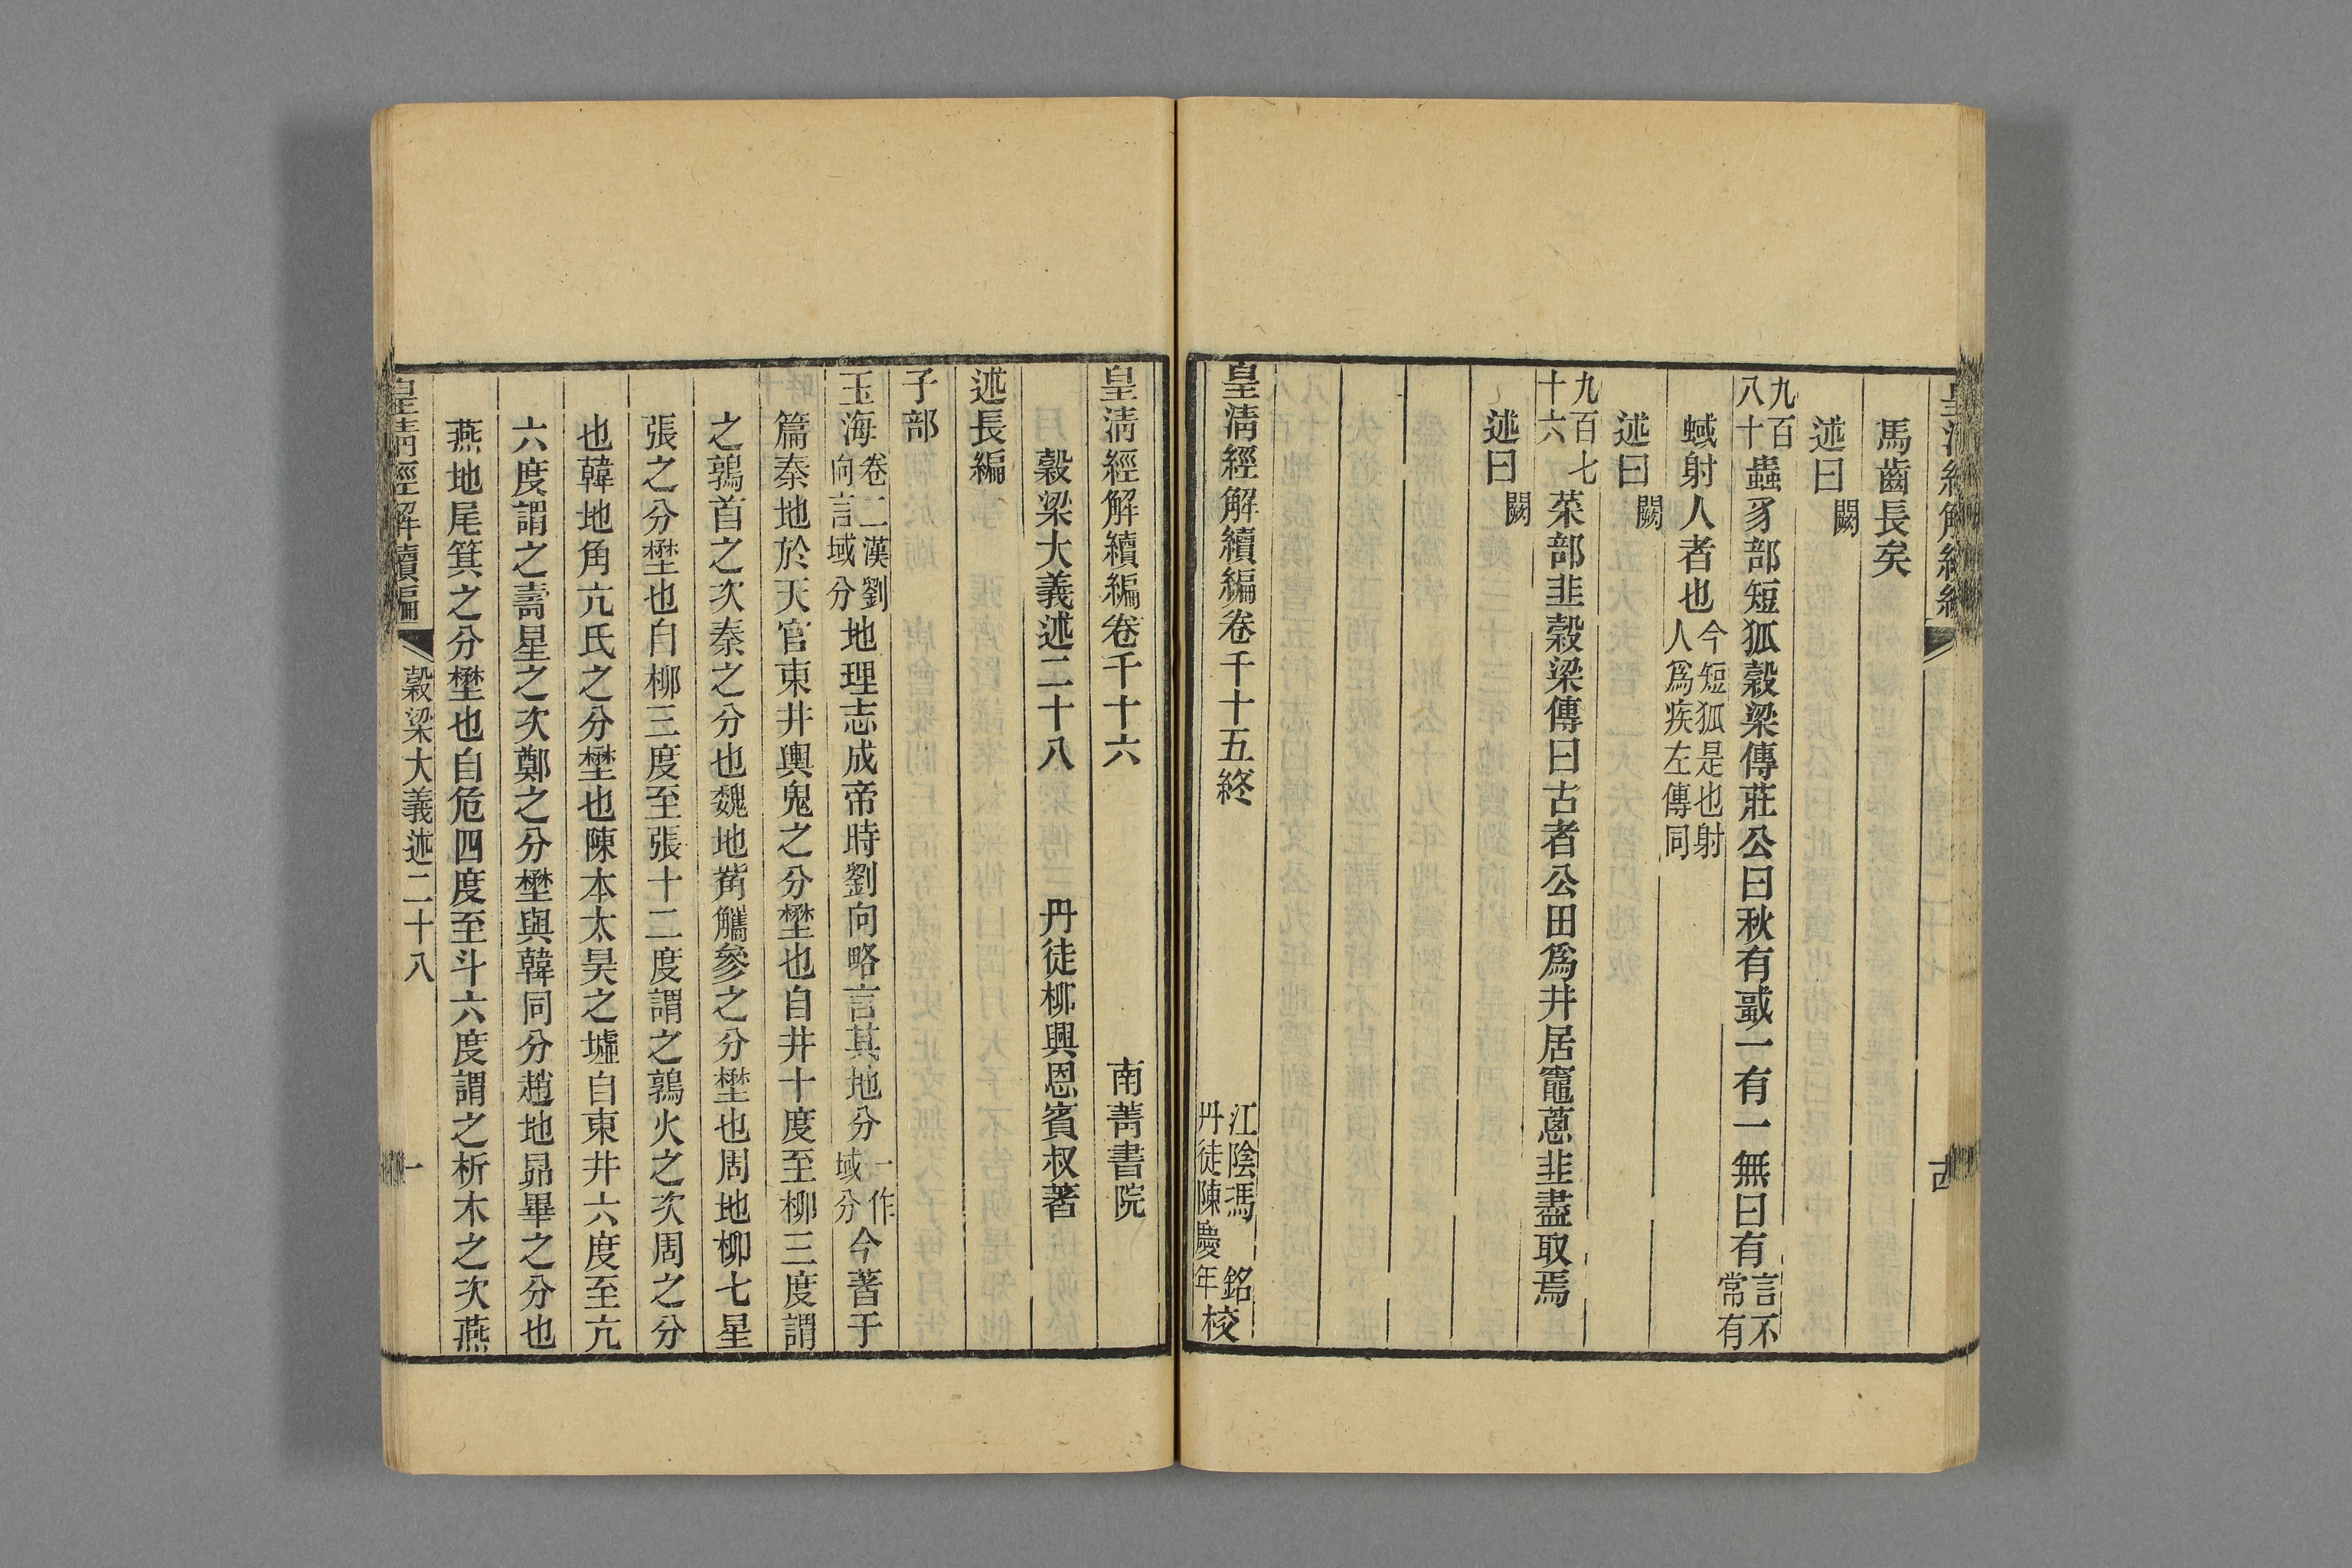 馬齒長矣
述曰闕
九百八十蟲豸部短狐穀梁傳莊公曰秋有蜮一有一無曰有言不常有
蜮射人者也今短狐是也射人爲疾左傳同
述曰闕
九百七十六菜部韭穀梁傳曰古者公田爲井居竈蔥韭盡取焉
述曰闕
皇清經解續編卷千十五終 江陰馮 銘丹徒陳慶年校
皇清經解續編卷千十六 南菁書院
穀梁大義述二十八 丹徒柳興恩賓叔著
述長編
子部
玉海卷二漢劉向言域分地理志成帝時劉向略言其地分一作域分今著于
篇秦地於天官東井輿鬼之分壄也自井十度至柳三度謂
之鶉首之次秦之分也魏地觜觿參之分壄也周地柳七星
張之分壄也自柳三度至張十二度謂之鶉火之次周之分
也韓地角亢氐之分壄也陳本太昊之墟自東井六度至亢
六度謂之壽星之次鄭之分壄與韓同分趙地昴畢之分也
燕地尾箕之分壄也自危四度至斗六度謂之析木之次燕
皇清經解續編 穀梁大義述二十八 一